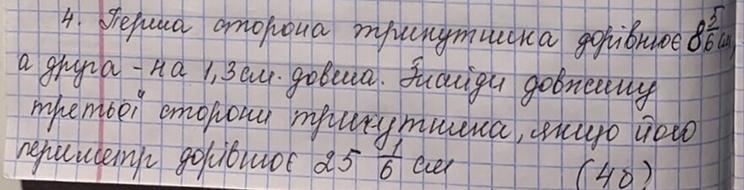 4. Перша сторона трикутника дорівнює 8 5/6 см,
а друга - на 1,3 см. довша. Знайди довжину
третьої сторони трикутника, якщо його
периметр дорівнює 25 1/6 см (4б)